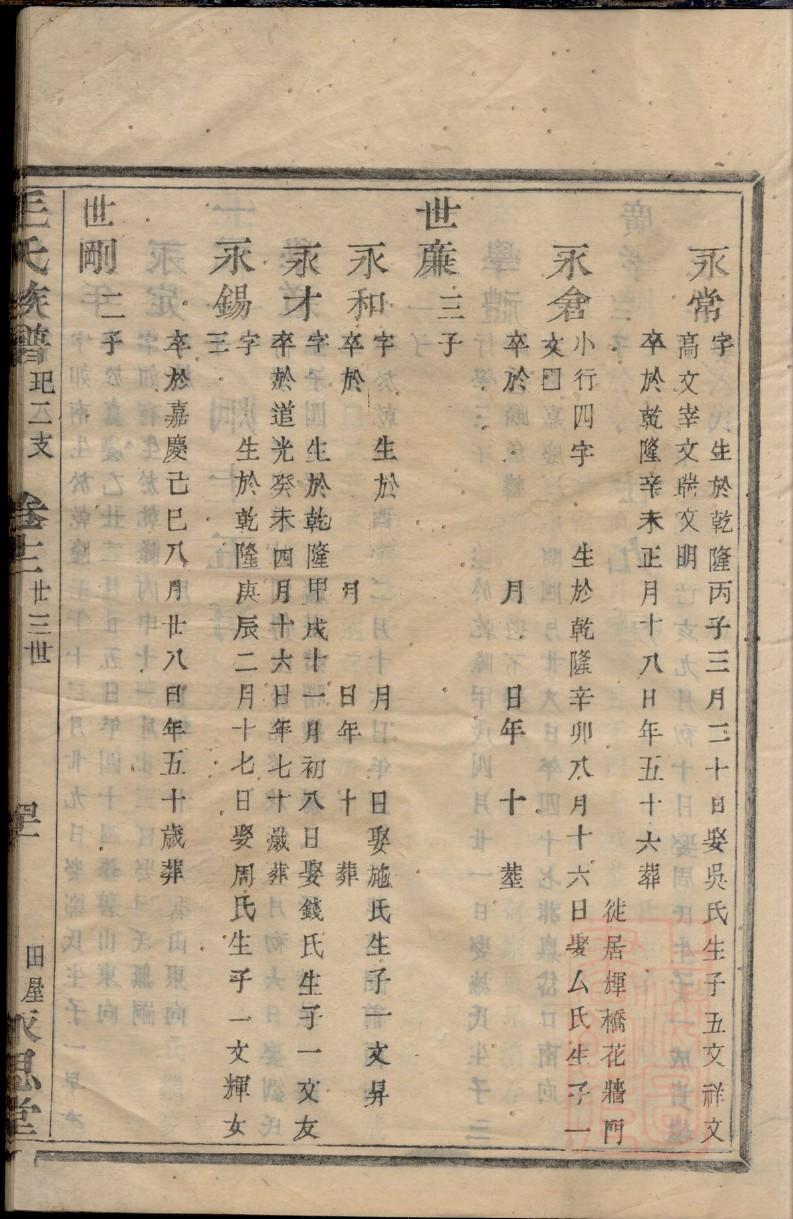 永常字 生於乾隆丙子三月二十日娶吳氏生子五文祥文
高文宰文瑞文明
卒於乾隆辛未正月十八日年五十六葬
徙居輝橋花牆門
永倉小行四字 生於乾隆辛卯八月十六日娶厶氏生子一
文囗
卒於 月 日年 十 塟
世廉三子
永和字 生於 月 日娶施氏生子一文昇
卒於 月 日年 十 葬
永才字 生於乾隆甲戌十一月初八日娶錢氏生子一文友
卒於道光癸未四月十六日年七十歲葬
永錫字 生於乾隆庚辰二月十七日娶周氏生子一文輝女
三
卒於嘉慶己巳八月廿八日年五十歲葬
世剛二子
毛氏族譜 玘二支 卷十二 廿三世 田屋 永思堂